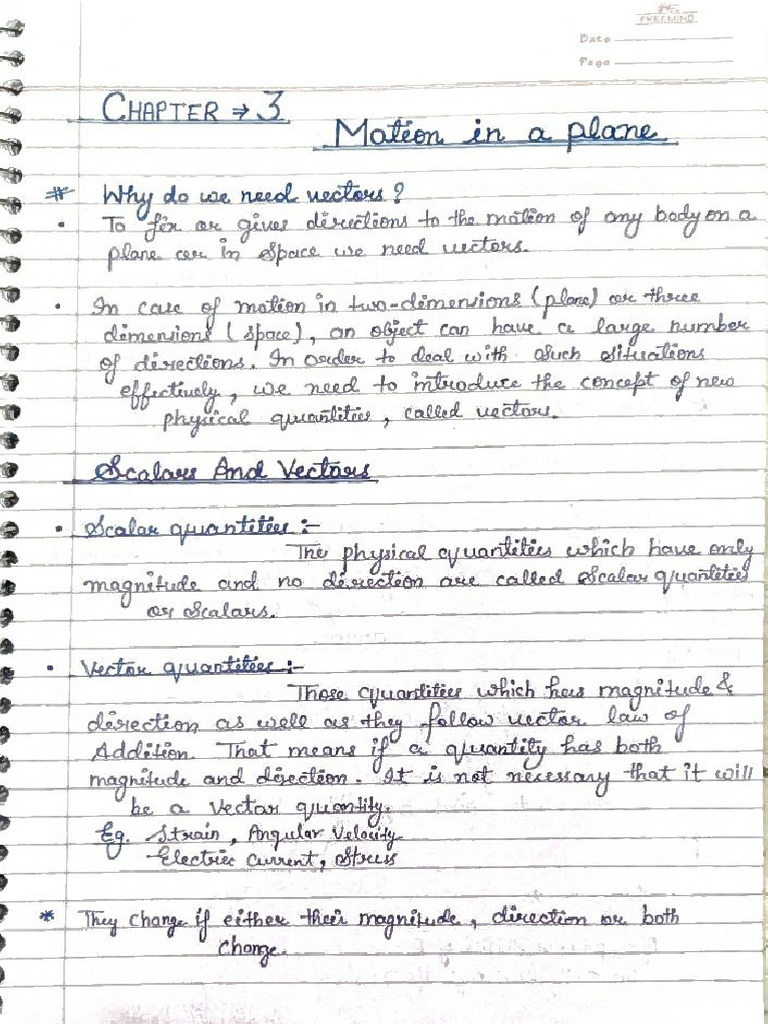 Date
Page
CHAPTER → 3
Motion in a plane
# Why do we need vectors?
• To fix or gives directions to the motion of any body on a
plane or in space we need vectors.
• In case of motion in two-dimensions (plane) or three
dimensions (space), an object can have a large number
of directions. In order to deal with such situations
effectively, we need to introduce the concept of new
physical quantities, called vectors.
Scalars And Vectors
• Scalar quantities :-
The physical quantities which have only
magnitude and no direction are called Scalar quantities
or Scalars.
• Vector quantities :-
Those quantities which has magnitude &
direction as well as they follow vector law of
Addition. That means if a quantity has both
magnitude and direction. It is not necessary that it will
be a Vector quantity.
Eg. Strain, Angular Velocity
Electric Current, Stress
* They change if either their magnitude, direction or both
change.